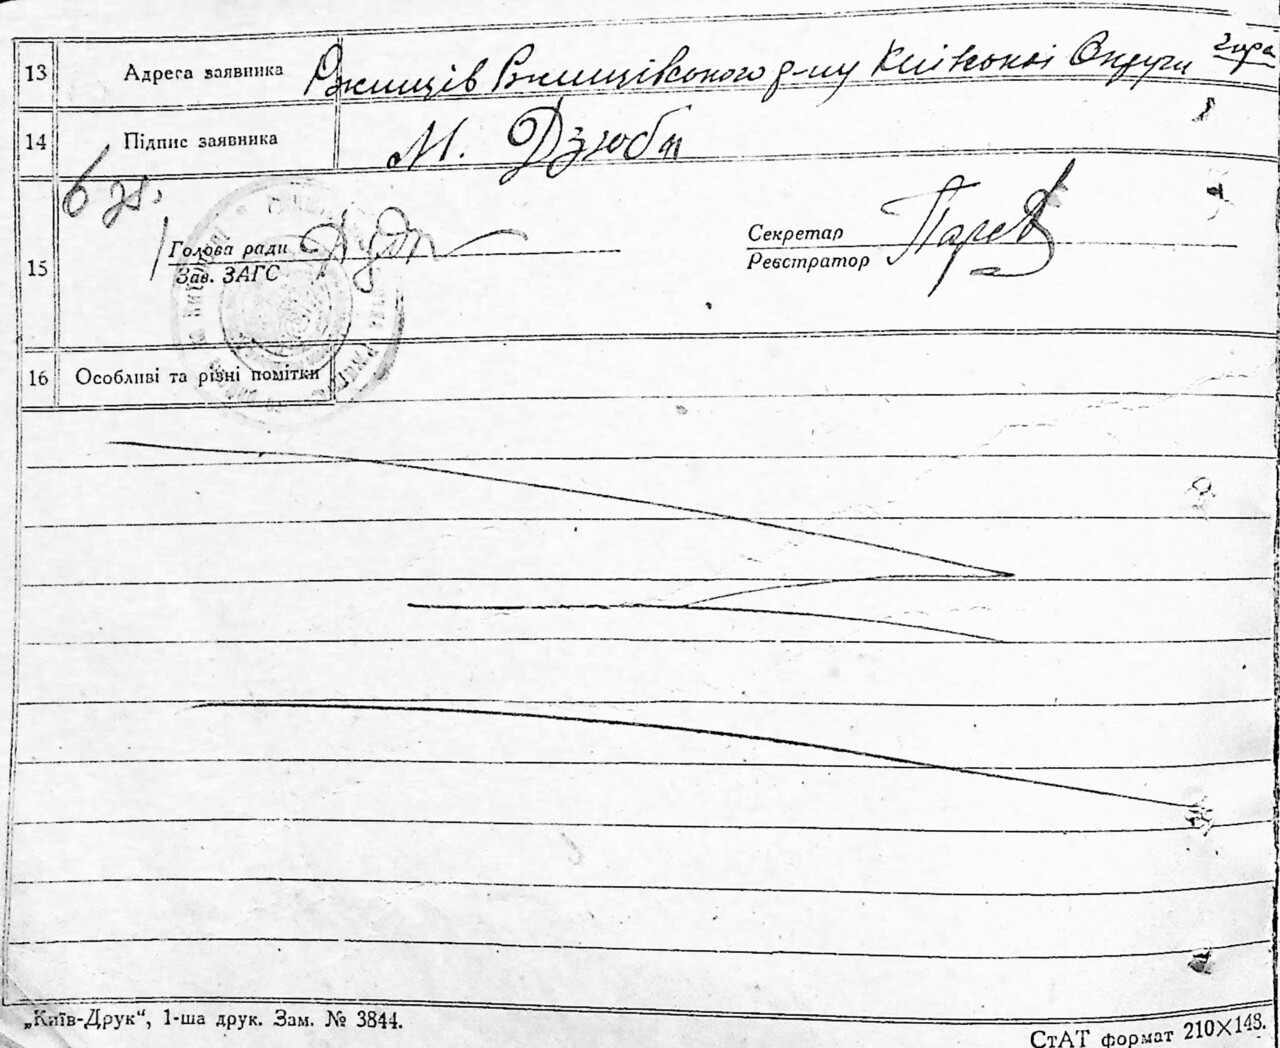 13 Адреса заявника Ржищів Ржищівського р-ну Київської Округи
14 Підпис заявника М. Дзюба
15
Голова ради
Зав. ЗАГС
Секретар
Реєстратор
16 Особливі та різні помітки
„Київ-Друк“, 1-ша друк. Зам. № 3844.
СтАТ формат 210×148.